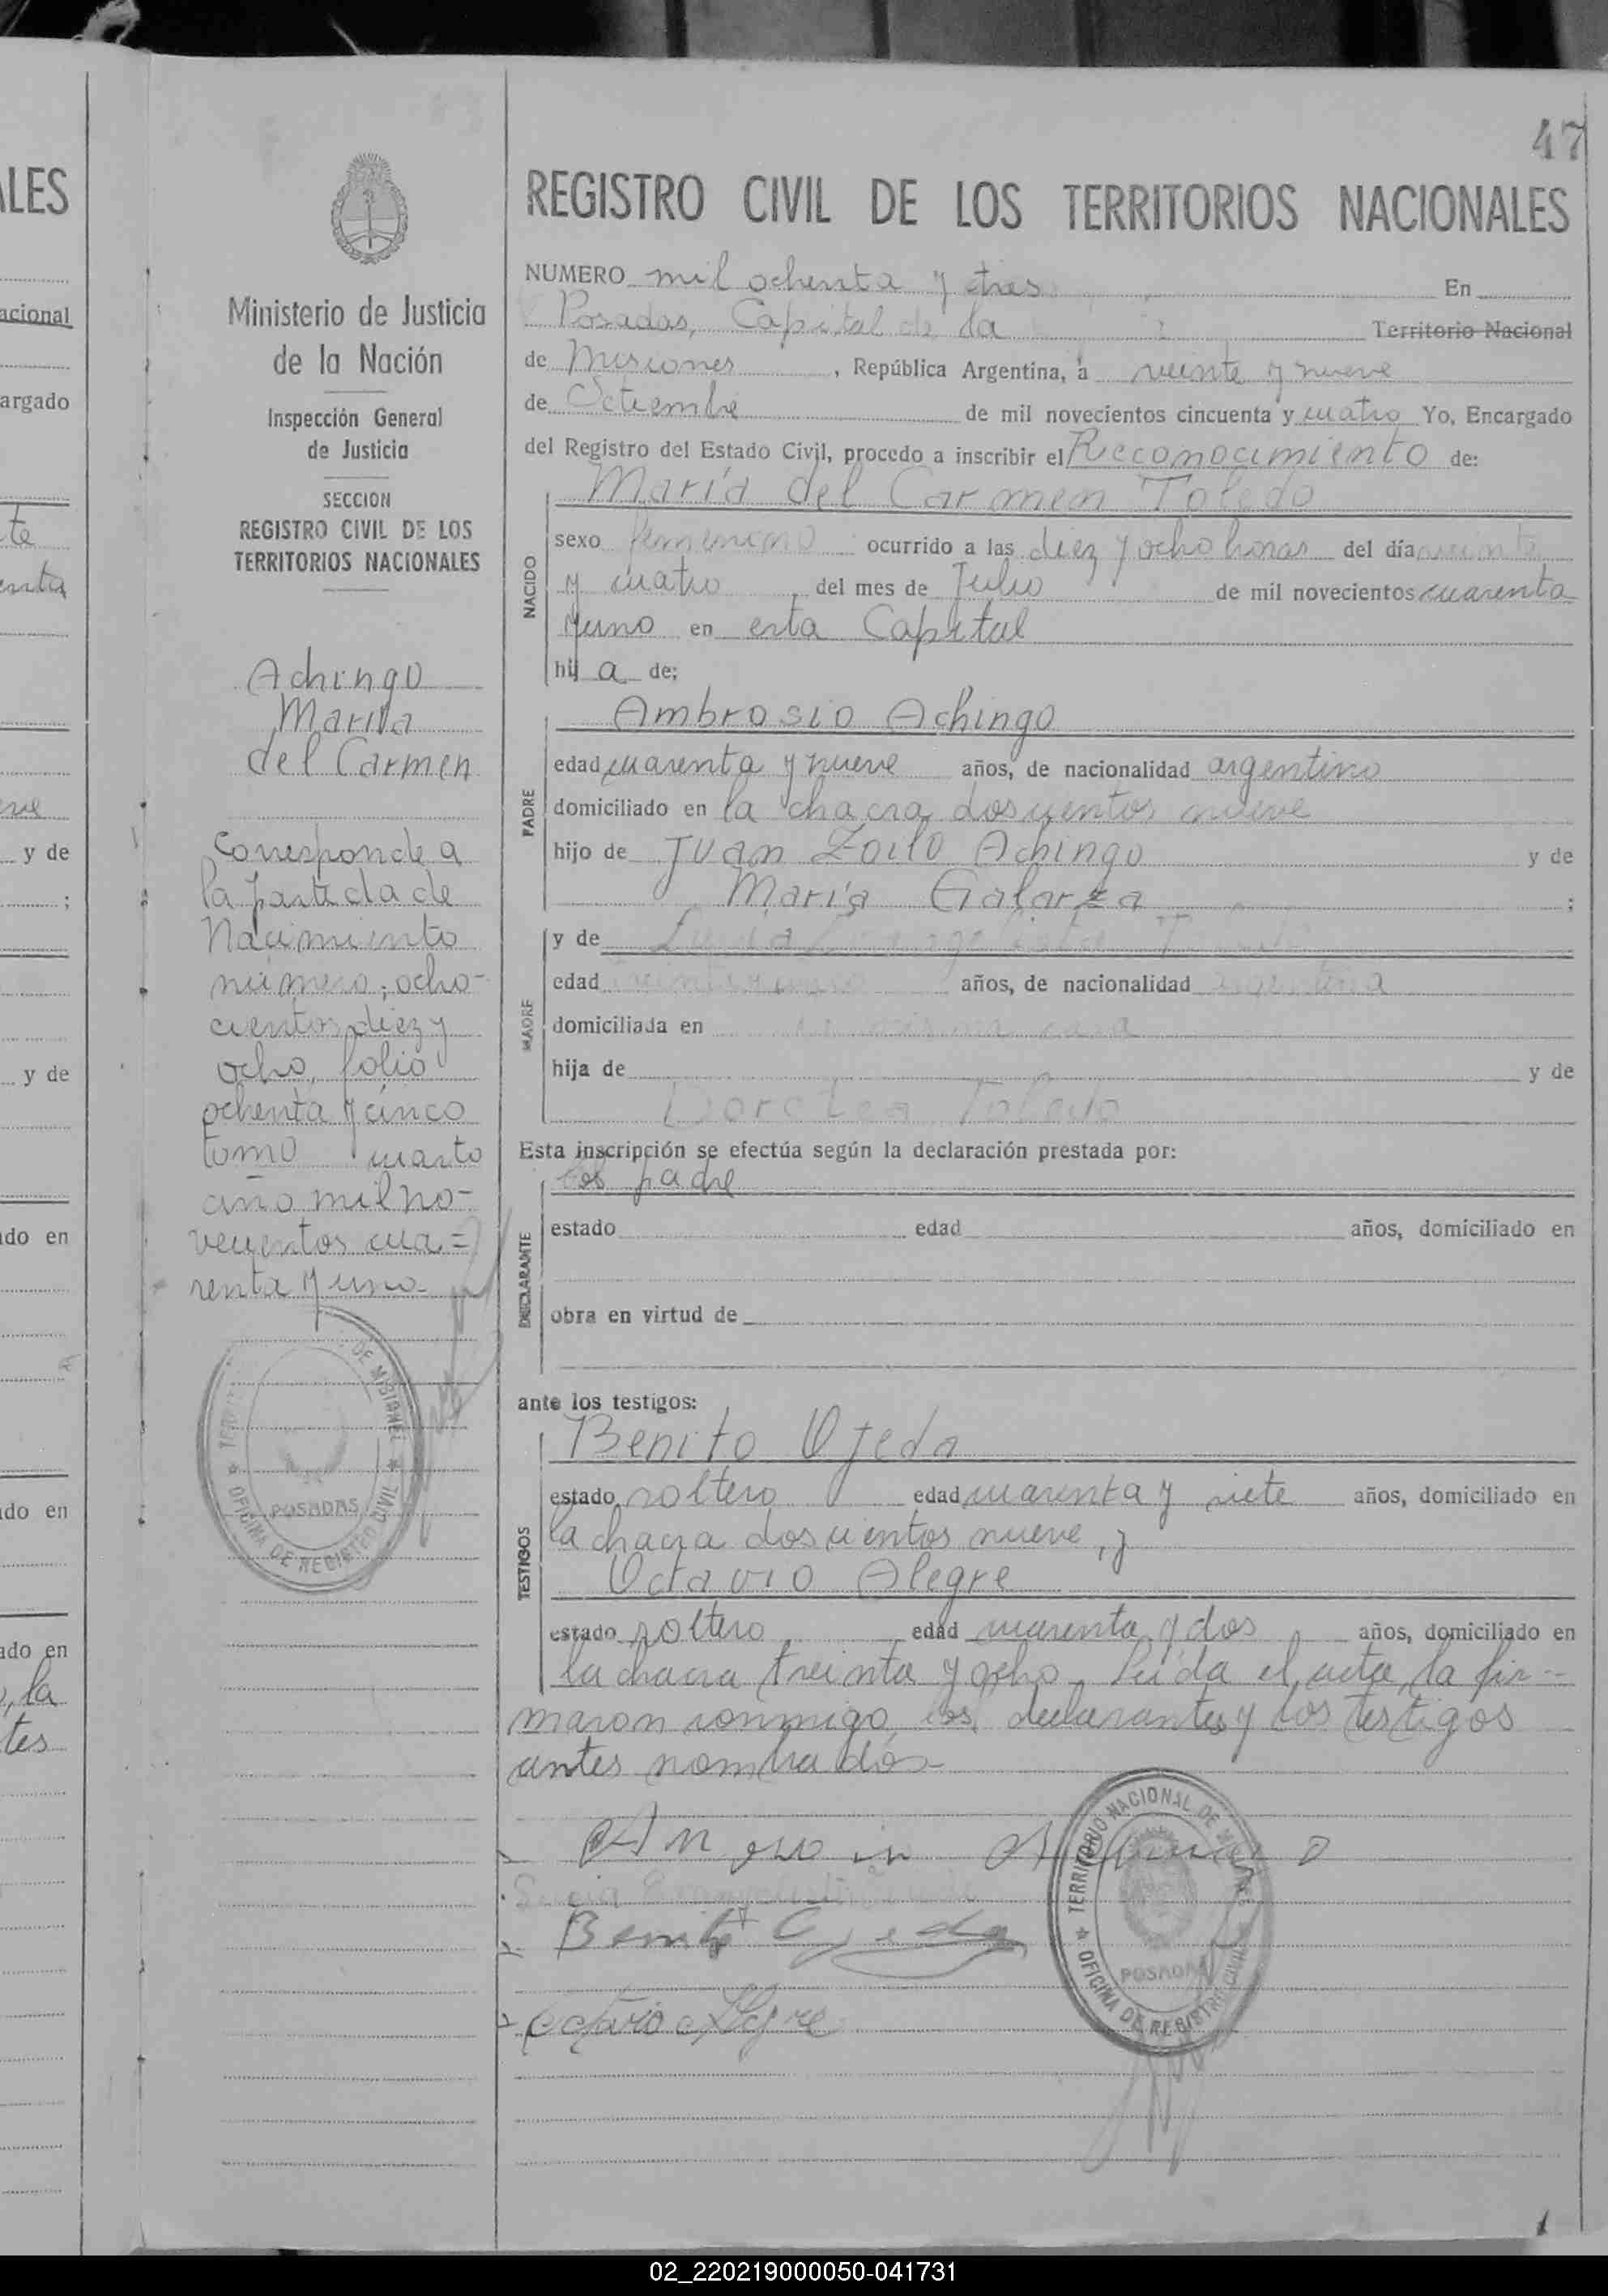 47
LES
acional
argado
te
enta
y de
;
y de
do en
do en
ado en
, la
tes
Ministerio de Justicia
de la Nación
Inspección General
de Justicia
SECCION
REGISTRO CIVIL DE LOS
TERRITORIOS NACIONALES
Achingo
María
del Carmen
Corresponde a
la partida de
Nacimiento
número; ocho-
cientos diez y
ocho, folio
ochenta y cinco
tomo cuarto
año mil no-
vecientos cua=
renta y uno
DE MISIONES
POSADAS
OFICINA DE REGISTRO CIVIL
REGISTRO CIVIL DE LOS TERRITORIOS NACIONALES
NUMERO mil ochenta y tres En
Posadas, Capital de la Territorio Nacional
de Misiones, República Argentina, a veinte y nueve
de Setiembre de mil novecientos cincuenta y cuatro Yo, Encargado
del Registro del Estado Civil, procedo a inscribir el Reconocimiento de:
María del Carmen Toledo
NACIDO
sexo femenino ocurrido a las diez y ocho horas del día veinte
y cuatro del mes de Julio de mil novecientos cuarenta
y uno en esta Capital
hij a de:
Ambrosio Achingo
PADRE
edad cuarenta y nueve años, de nacionalidad argentino
domiciliado en la chacra doscientos nueve
hijo de Juan Zoilo Achingo y de
María Galarza ;
MADRE
y de
edad años, de nacionalidad argentina
domiciliada en la misma casa
hija de y de
Dorotea Toledo
Esta inscripción se efectúa según la declaración prestada por:
los padre
DECLARANTE
estado edad años, domiciliado en
obra en virtud de
ante los testigos:
Benito Ojeda
TESTIGOS
estado soltero edad cuarenta y siete años, domiciliado en
la chacra doscientos nueve, y
Octavio Alegre
estado soltero edad cuarenta y dos años, domiciliado en
la chacra treinta y ocho. Leída el acta, la fir-
maron conmigo, los declarantes y los testigos
antes nombrados-
Benito Ojeda
Octavio Alegre
TERRITORIO NACIONAL DE
POSADAS
OFICINA DE REGISTRO CIVIL
02_220219000050-041731